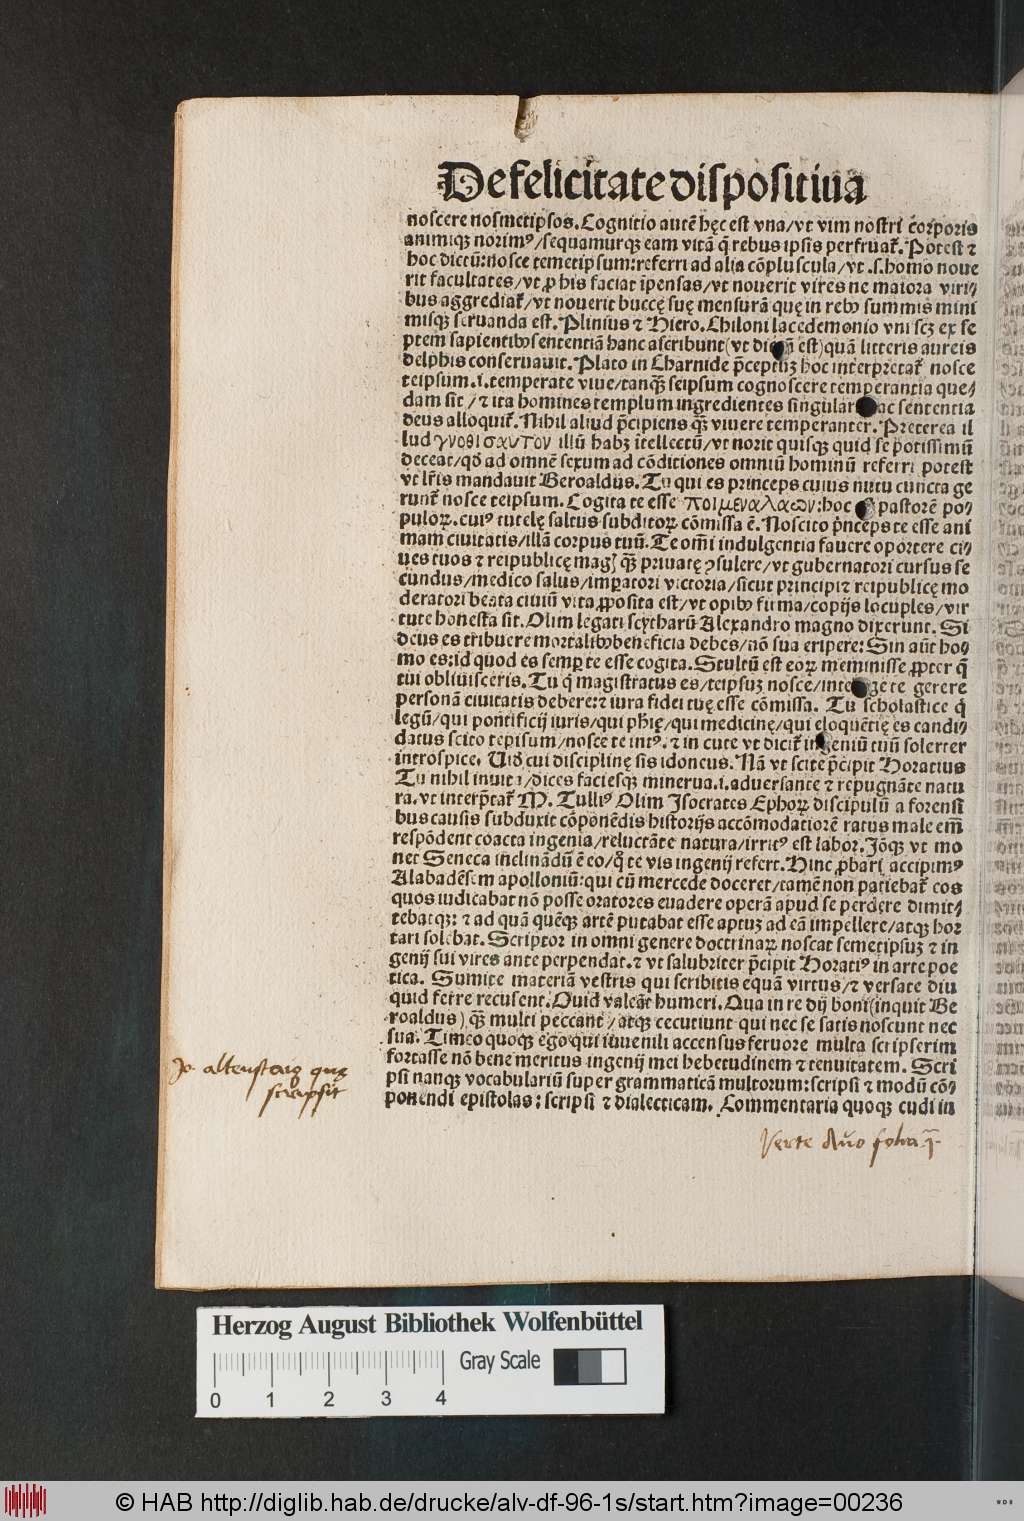 De felicitate dispositiua
noscere nosmetipsos. Cognitio autē hęc est vna/vt vim nostri corporis
animiqꝫ norimꝰ/sequamurqꝫ eam vitā q̄ rebus ipsis perfruat᷑. Potest ⁊
hoc dictū: nosce temetipsum: referri ad alia cōpluscula/vt .s. homo noue
rit facultates/vt ꝓ his faciat īpensas/vt nouerit vires ne maiora viri⸗
bus aggrediat᷑/vt nouerit buccę suę mensurā quę in rebꝰ summis mini
misqꝫ seruanda est. Plinius ⁊ Hiero. Chiloni lacedemonio vni scꝫ ex se
ptem sapientibꝰ sententiā hanc ascribunt (vt est) quā litteris aureis
delphis conseruauit. Plato in Charnide p̄ceptuꝫ hoc interpretat᷑ nosce
teipsum .i. temperate viue/tanqꝫ̄ seipsum cognoscere temperantia que⸗
dam sit/⁊ ita homines templum ingredientes singulari hac sententia
deus alloquit᷑. Nihil aliud p̄cipiens qꝫ̄ viuere temperanter. Preterea il
lud γνοθι σαυτον illū habꝫ ītellectū/vt norit quisqꝫ quid se potissimū
deceat/qđ ad omnē sexum ad cōditiones omniū hominū referri potest
vt lr̄is mandauit Beroaldus. Tu qui es princeps cuius nutu cuncta ge
runt᷑ nosce teipsum. Cogita te esse ποιμεναλαων: hoc pastorē po⸗
puloꝝ. cuiꝰ tutelę saltus subditoꝝ cōmissa ē. Noscito p̄nceps te esse ani
mam ciuitatis/illā corpus tuū. Te om̄i indulgentia fauere oportere ci⸗
ues tuos ⁊ reipublicę mag᷑ qꝫ̄ priuatę ꝯsulere/vt gubernatori cursus se
cundus/medico salus/imꝑatori victoria/sicut principi ⁊ reipublicę mo
deratori beata ciuiū vita ꝓposita est/vt opibꝰ firma/copijs locuples/vir
tute honesta sit. Olim legati scytharū Alexandro magno dixerunt. Si
deus es tribuere mortalibꝰ beneficia debes/nō sua eripere: Sin aūt ho⸗
mo es: id quod es semꝑ te esse cogita. Stultū est eoꝝ meminisse ꝓpter q̄
tui obliuisceris. Tu q magistratus es/teipsuꝫ nosce/ te gerere
personā ciuitatis debere: ⁊ iura fidei tuę esse cōmissa. Tu scholastice q
legū/qui pontificij iuris/qui phīę/qui medicinę/qui eloquētię es candi⸗
datus scito teipisum/nosce te intꝰ. ⁊ in cute vt dicit᷑ ingeniū tuū solerter
introspice. Uiđ cui disciplinę sis idoneus. Nā vt scite p̄cipit Horatius
Tu nihil inuita/dices faciesqꝫ minerua .i. aduersante ⁊ repugnāte natu
ra. vt interp̄tat᷑ M. Tulliꝰ Olim Isocrates Ephoꝝ discipulū a forensi
bus causis subduxit cōponēdis historijs accōmodatiorē ratus male em̄
respōdent coacta ingenia/reluctāte natura/irritꝰ est labor. Iōqꝫ vt mo
net Seneca inclinādū ē eo/q̊ te vis ingenij refert. Hinc ꝓbari accipimꝰ
Alabadēsem apolloniū: qui cū mercede doceret/tamē non patiebat᷑ eos
quos iudicabat nō posse oratores euadere operā apud se perdere dimit⸗
tebatqꝫ: ⁊ ad quā quēqꝫ artē putabat esse aptuꝫ ad eā impellere/atqꝫ hor
tari solebat. Scriptor in omni genere doctrinaꝝ noscat semetipsuꝫ ⁊ in
genij sui vires ante perpendat. ⁊ vt salubriter p̄cipit Horatiꝰ in arte poe
tica. Sumite materiā vestris qui scribitis equam virtus/⁊ versate diu
quid ferre recusent. Quid valeāt humeri. Qua in re dij boni (inquit Be
roaldus) qꝫ̄ multi peccant/atqꝫ cecutiunt qui nec se satis noscunt nec
sua. Timeo quoqꝫ ego qui iuuenili accensus feruore multa scripserim
fortasse nō bene meritus ingenij mei hebetudinem ⁊ tenuitatem. Scri
psi nanqꝫ vocabulariū super grammaticā multorum: scripsi ⁊ modū cō⸗
ponendi epistolas: scripsi ⁊ dialecticam. Commentaria quoqꝫ cudi in
Jo. altenstaig quę
scripsit
Verte duo folia
Herzog August Bibliothek Wolfenbüttel
Gray Scale
0 1 2 3 4
© HAB http://diglib.hab.de/drucke/alv-df-96-1s/start.htm?image=00236